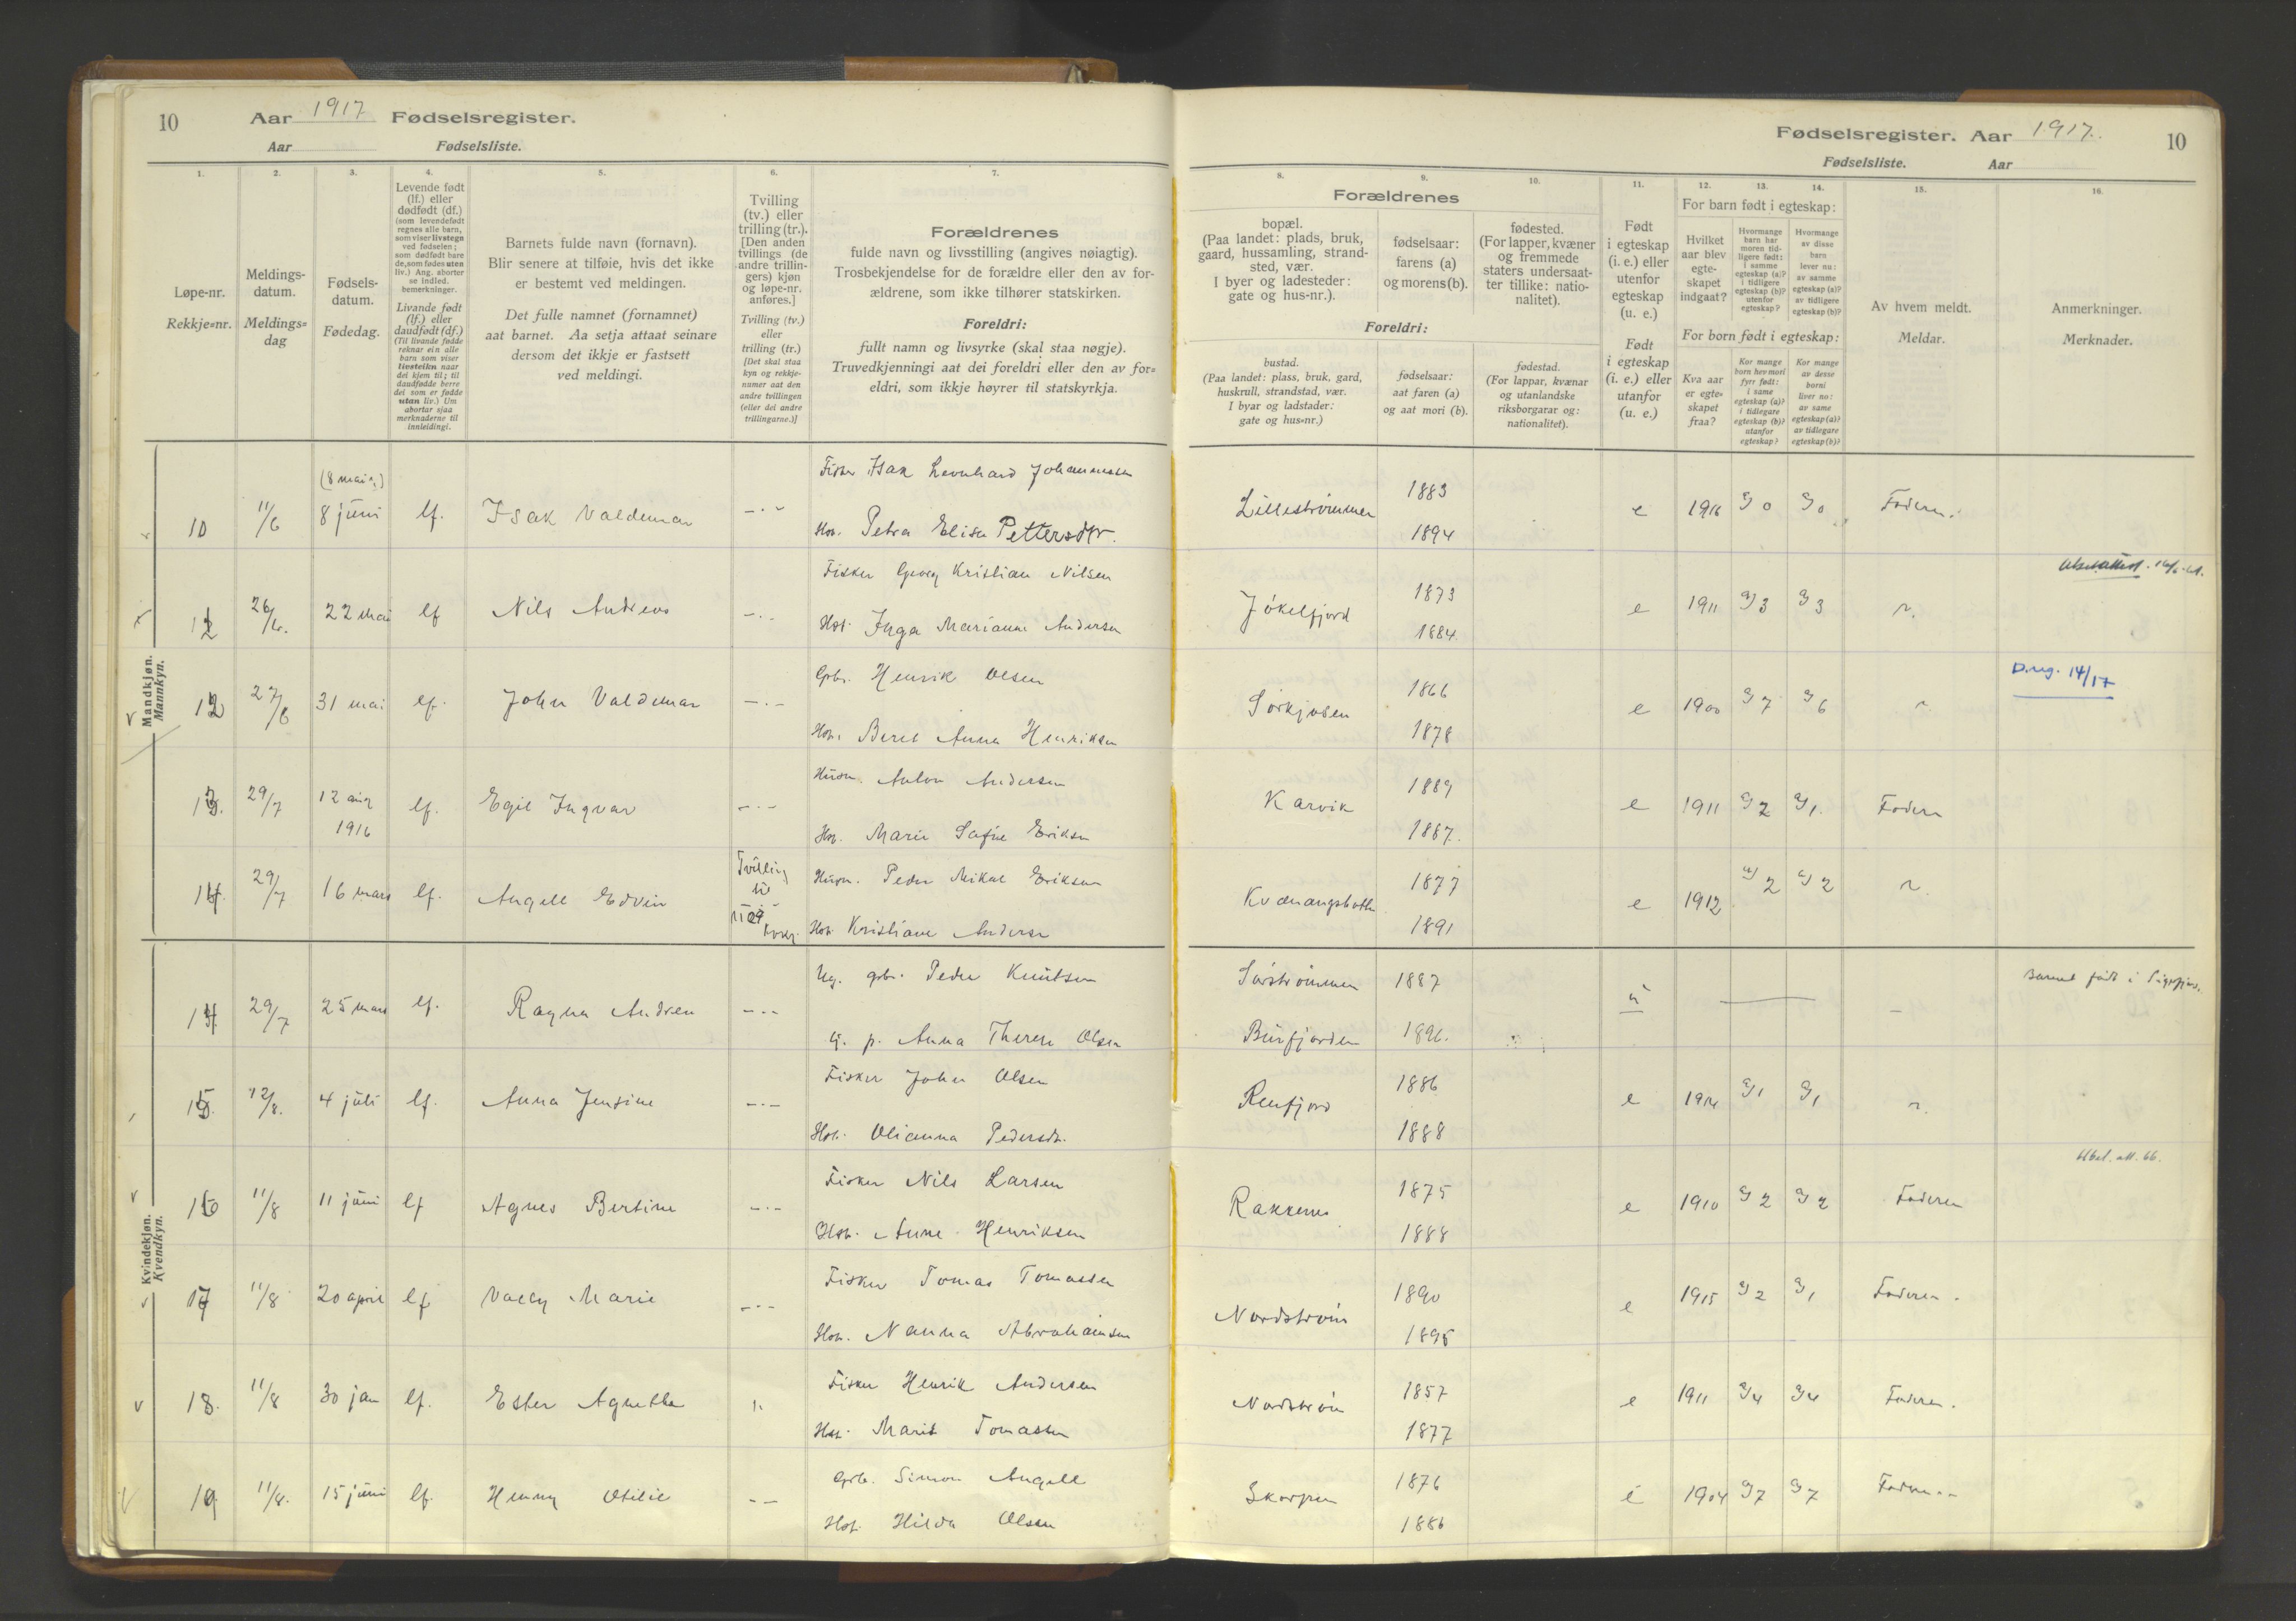 10
Aar 1917 Fødselsregister.
Aar
Fødselsliste.
1.
2.
3.
4.
5.
6.
7.
Løpe-nr.
Rekkje=nr.
Meldings-
datum.
Meldings=
dag
Fødsels-
datum.
Fødedag.
Levende født
(lf.) eller
dødfødt (df.)
(som levendefødt
regnes alle barn,
som viser livstegn
ved fødselen;
som dødfødt bare
de, som fødes uten
liv.) Ang. aborter
se indled.
bemerkninger.
Livande født
(lf.) eller
daudfødt (df.)
(Til livande fødde
reknar ein alle
barn som viser
livsteikn naar
dei kjem til; til
daudfødde berre
dei som er fødde
utan liv.) Um
abortar sjaa
merknaderne til
innleidingi.
Barnets fulde navn (fornavn).
Blir senere at tilføie, hvis det ikke
er bestemt ved meldingen.
Det fulle namnet (fornamnet)
aat barnet. Aa setja attaat seinare
dersom det ikkje er fastsett
ved meldingi.
Tvilling
(tv.) eller
trilling (tr.).
[Den anden
tvillings (de
andre trillin-
gers) kjøn
og løpe-nr.
anføres.]
Tvilling (tv.)
eller
trilling (tr.)
[Det skal staa
kyn og rekkje-
numer aat den
andre tvillingen
(eller dei andre
trillingarne.)]
Forældrenes
fulde navn og livsstilling (angives nøiagtig).
Trosbekjendelse for de forældre eller den av for-
ældrene, som ikke tilhører statskirken.
Foreldri:
fullt namn og livsyrke (skal staa nøgje).
Truvedkjenningi aat dei foreldri eller den av for=
eldri, som ikkje høyrer til statskyrkja.
Fødselsregister. Aar 1917.
10
Fødselsliste.
Aar
8.
9.
10.
11.
12.
13.
14.
15.
16.
Forældrenes
bopæl.
(Paa landet: plads, bruk,
gaard, hussamling, strand-
sted, vær.
I byer og ladesteder:
gate og hus-nr.).
fødselsaar:
farens (a)
og morens (b).
fødested.
(For lapper, kvæner
og fremmede
staters undersaat-
ter tillike: natio-
nalitet).
Foreldri:
bustad.
(Paa landet: plass, bruk, gard,
huskrull, strandstad, vær.
I byar og ladstader:
gate og hus=nr.)
fødselsaar:
aat faren (a)
og aat mori (b).
fødestad.
(For lappar, kvænar
og utanlandske
riksborgarar og:
nationalitet).
Født
i egteskap
(i. e.) eller
utenfor
egteskap
(u. e.)
Født
i egteskap
(i. e.) eller
utanfor
(u. e.)
For barn født i egteskap:
Hvilket
aar blev
egte-
skapet
indgaat?
Hvormange
barn har
moren tid-
ligere født:
i samme
egteskap (a)?
i tidligere
egteskap (b)?
utenfor
egteskap?
Hvormange
av disse
barn
lever nu:
av samme
egteskap (a)?
av tidligere
egteskap (b)?
For born født i egteskap:
Kva aar
er egte=
skapet
fraa?
Kor mange
born hev mori
fyrr født:
i same
egteskap (a)?
i tidlegare
egteskap (b)?
utanfor
egteskap?
Kor mange
av desse
borni
liver no:
av same
egteskap (a)?
av tidlegare
egteskap (b)?
Av hvem meldt.
Meldar.
Anmerkninger.
Merknader.
Mandkjøn.
Mannkyn.
(8 mai)
10 11/6 8 juni lf. Isak Valdemar
Fisker Isak Leonhard Johannessen
Hst. Petra Elisa Pettersdtr.
Lillestrømmen 1883 1894 e 1916 a) 0 a) 0 Faderen.
26/6. 22 mai lf Nils Andreas
Fisker Georg Kristian Nilsen
Hst. Inga Marianne Andersen
Jøkelfjord 1873 1884. e 1911 a) 3 a) 3
12 27/6 31 mai lf. John Valdemar
Gbr. Henrik Olsen
Hst. Beret Anna Henriksen
Sørkjosen 1866 1878 e 1900 a) 7 a) 6
D.reg. 14/17
13. 29/7 12 aug 1916 lf. Egil Ingvar
Husm. Anton Andersen
Hst. Marie Sofie Eriksen
Karvik 1889 1887. e 1911 a) 2 a) 1. Faderen
14. 29/7 16 mars lf. Angell Edvin
Tvilling til
Husm. Peder Mikal Eriksen
Hst. Kristiane Andersen
Kvænangsbotn 1877 1891 e 1912 a) 2 a) 2
Kvindekjøn.
Kvendkyn.
14. 29/7 25 mars lf. Ragna Andrea
Ug. gbr. Peder Knutsen
U. p. Anna Therese Olsen
Sørstrømmen 1887
Burfjorden 1896. u
Barnet født i
15. 12/8. 4 juli lf. Anna Jensine
Fisker John Olsen
Hst. Olianna Pedersdtr.
Reinfjord 1886 1888 e 1914 a) 1 a) 1
16 11/8 11 juni lf Agnes Bertine
Fisker Nils Larsen
Hst. Anne Henriksen
Rakkenes 1875 1888 e 1910 a) 2 a) 2 Faderen
Utbet. att. 66.
17 11/8 20 april lf Vally Marie
Fisker Tomas Tomassen
Hst. Nanna Abrahamsen
Nordstrøm 1890 1895 e 1915 a) 2 a) 1 Faderen.
18. 11/8 30 jan lf. Ester Agnethe
Fisker Henrik Andersen
Hst. Marit Tomassen
Nordstrøm 1857 1877 e 1911 a) 4 a) 4 Faderen.
19 11/8. 15 juni lf. Henny Otilie
Gbr. Simon Angell
Hst. Hilda Olsen
Skorpen 1876 1886 e 1904 a) 7 a) 7 Faderen